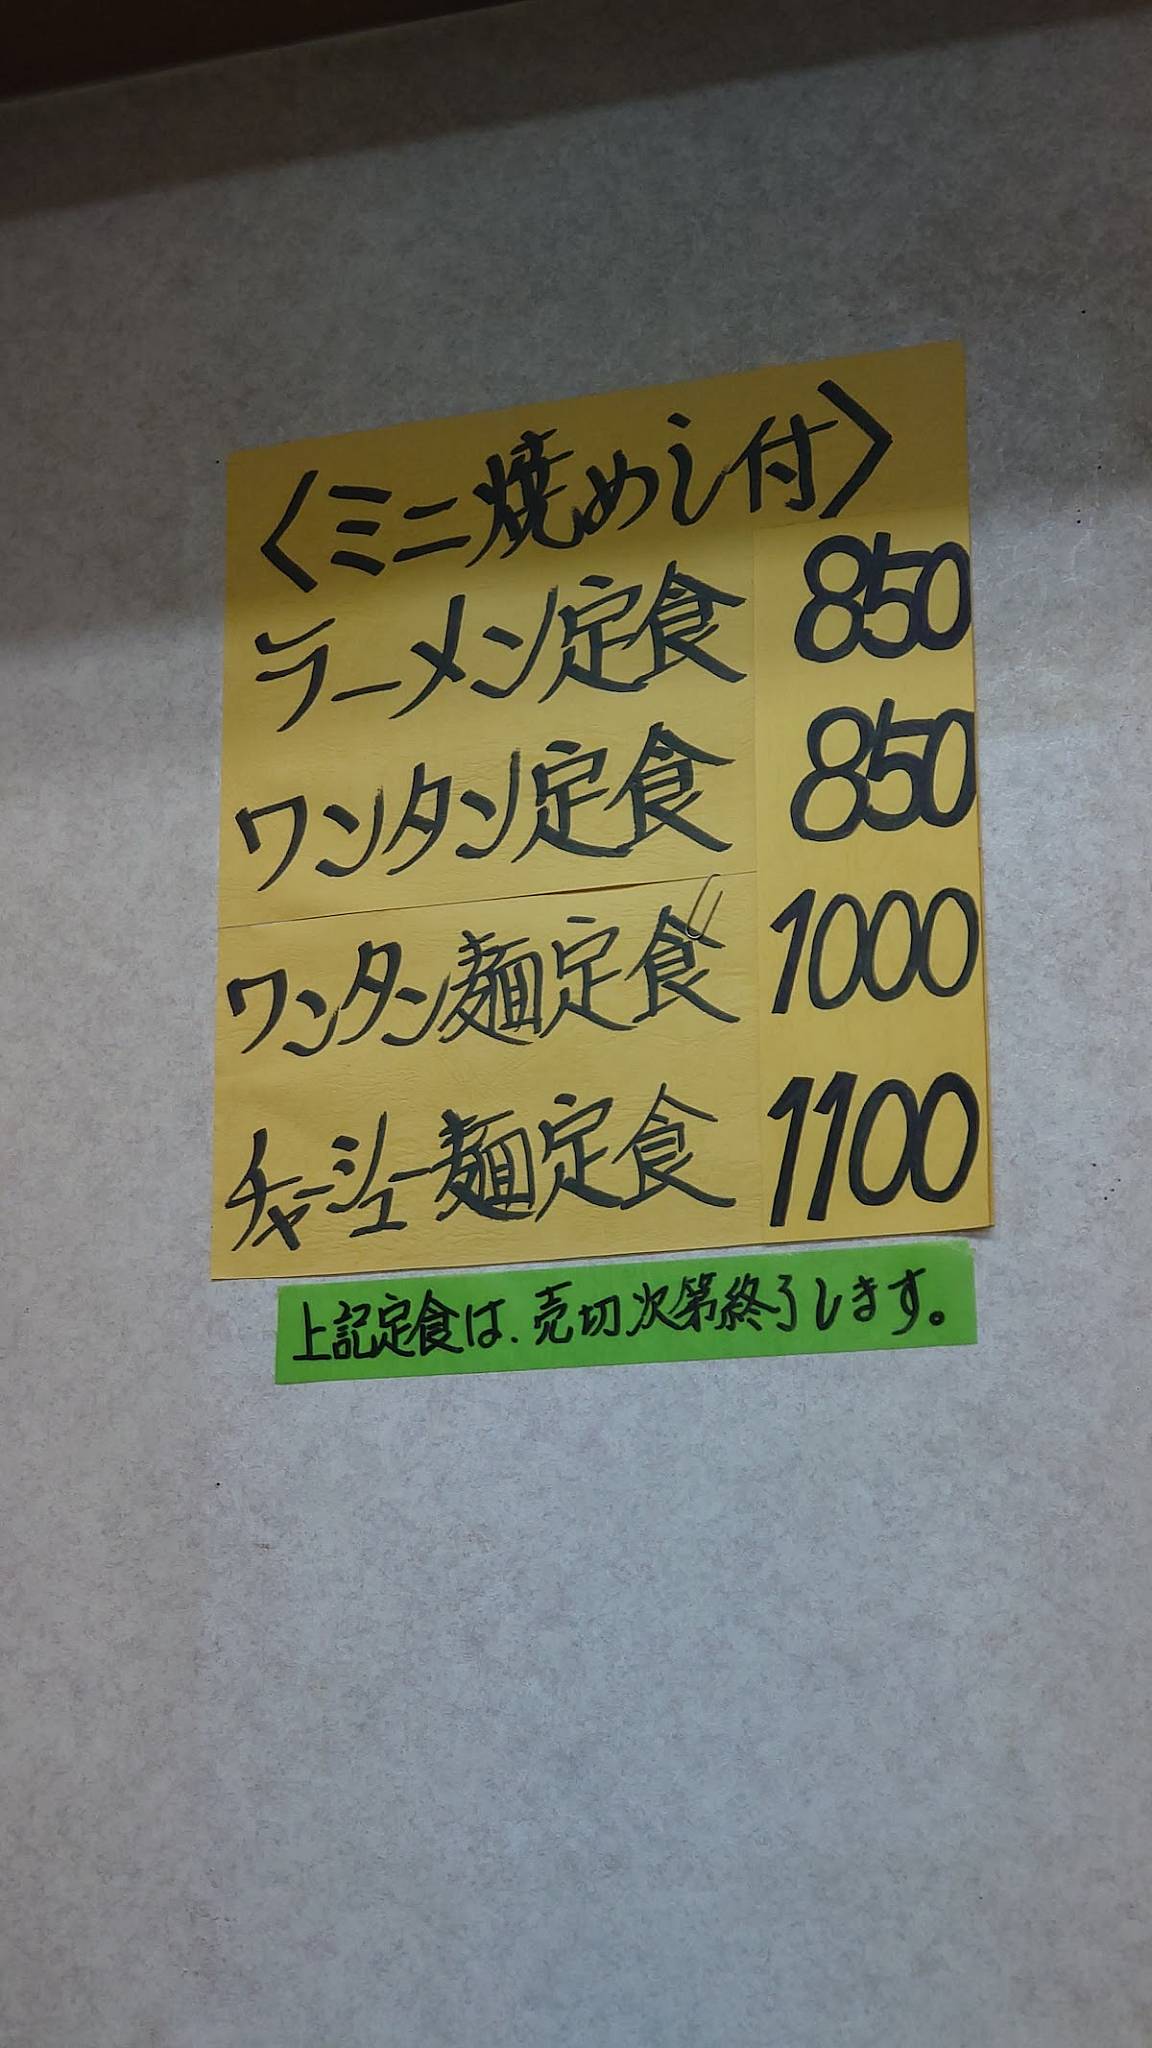 〈ミニ焼めし付〉
ラーメン定食 850
ワンタン定食 850
ワンタン麺定食 1000
チャーシュー麺定食 1100
上記定食は、売切次第終了します。